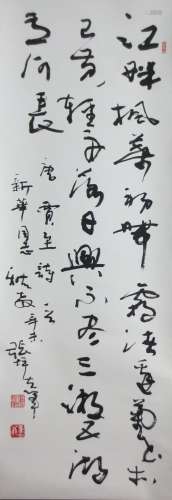 江畔楓葉初帶霜渚邊菊花亦
已黄輕舟落日興不盡三湘五湖
意何長
唐賈至詩
新華同志
辛未